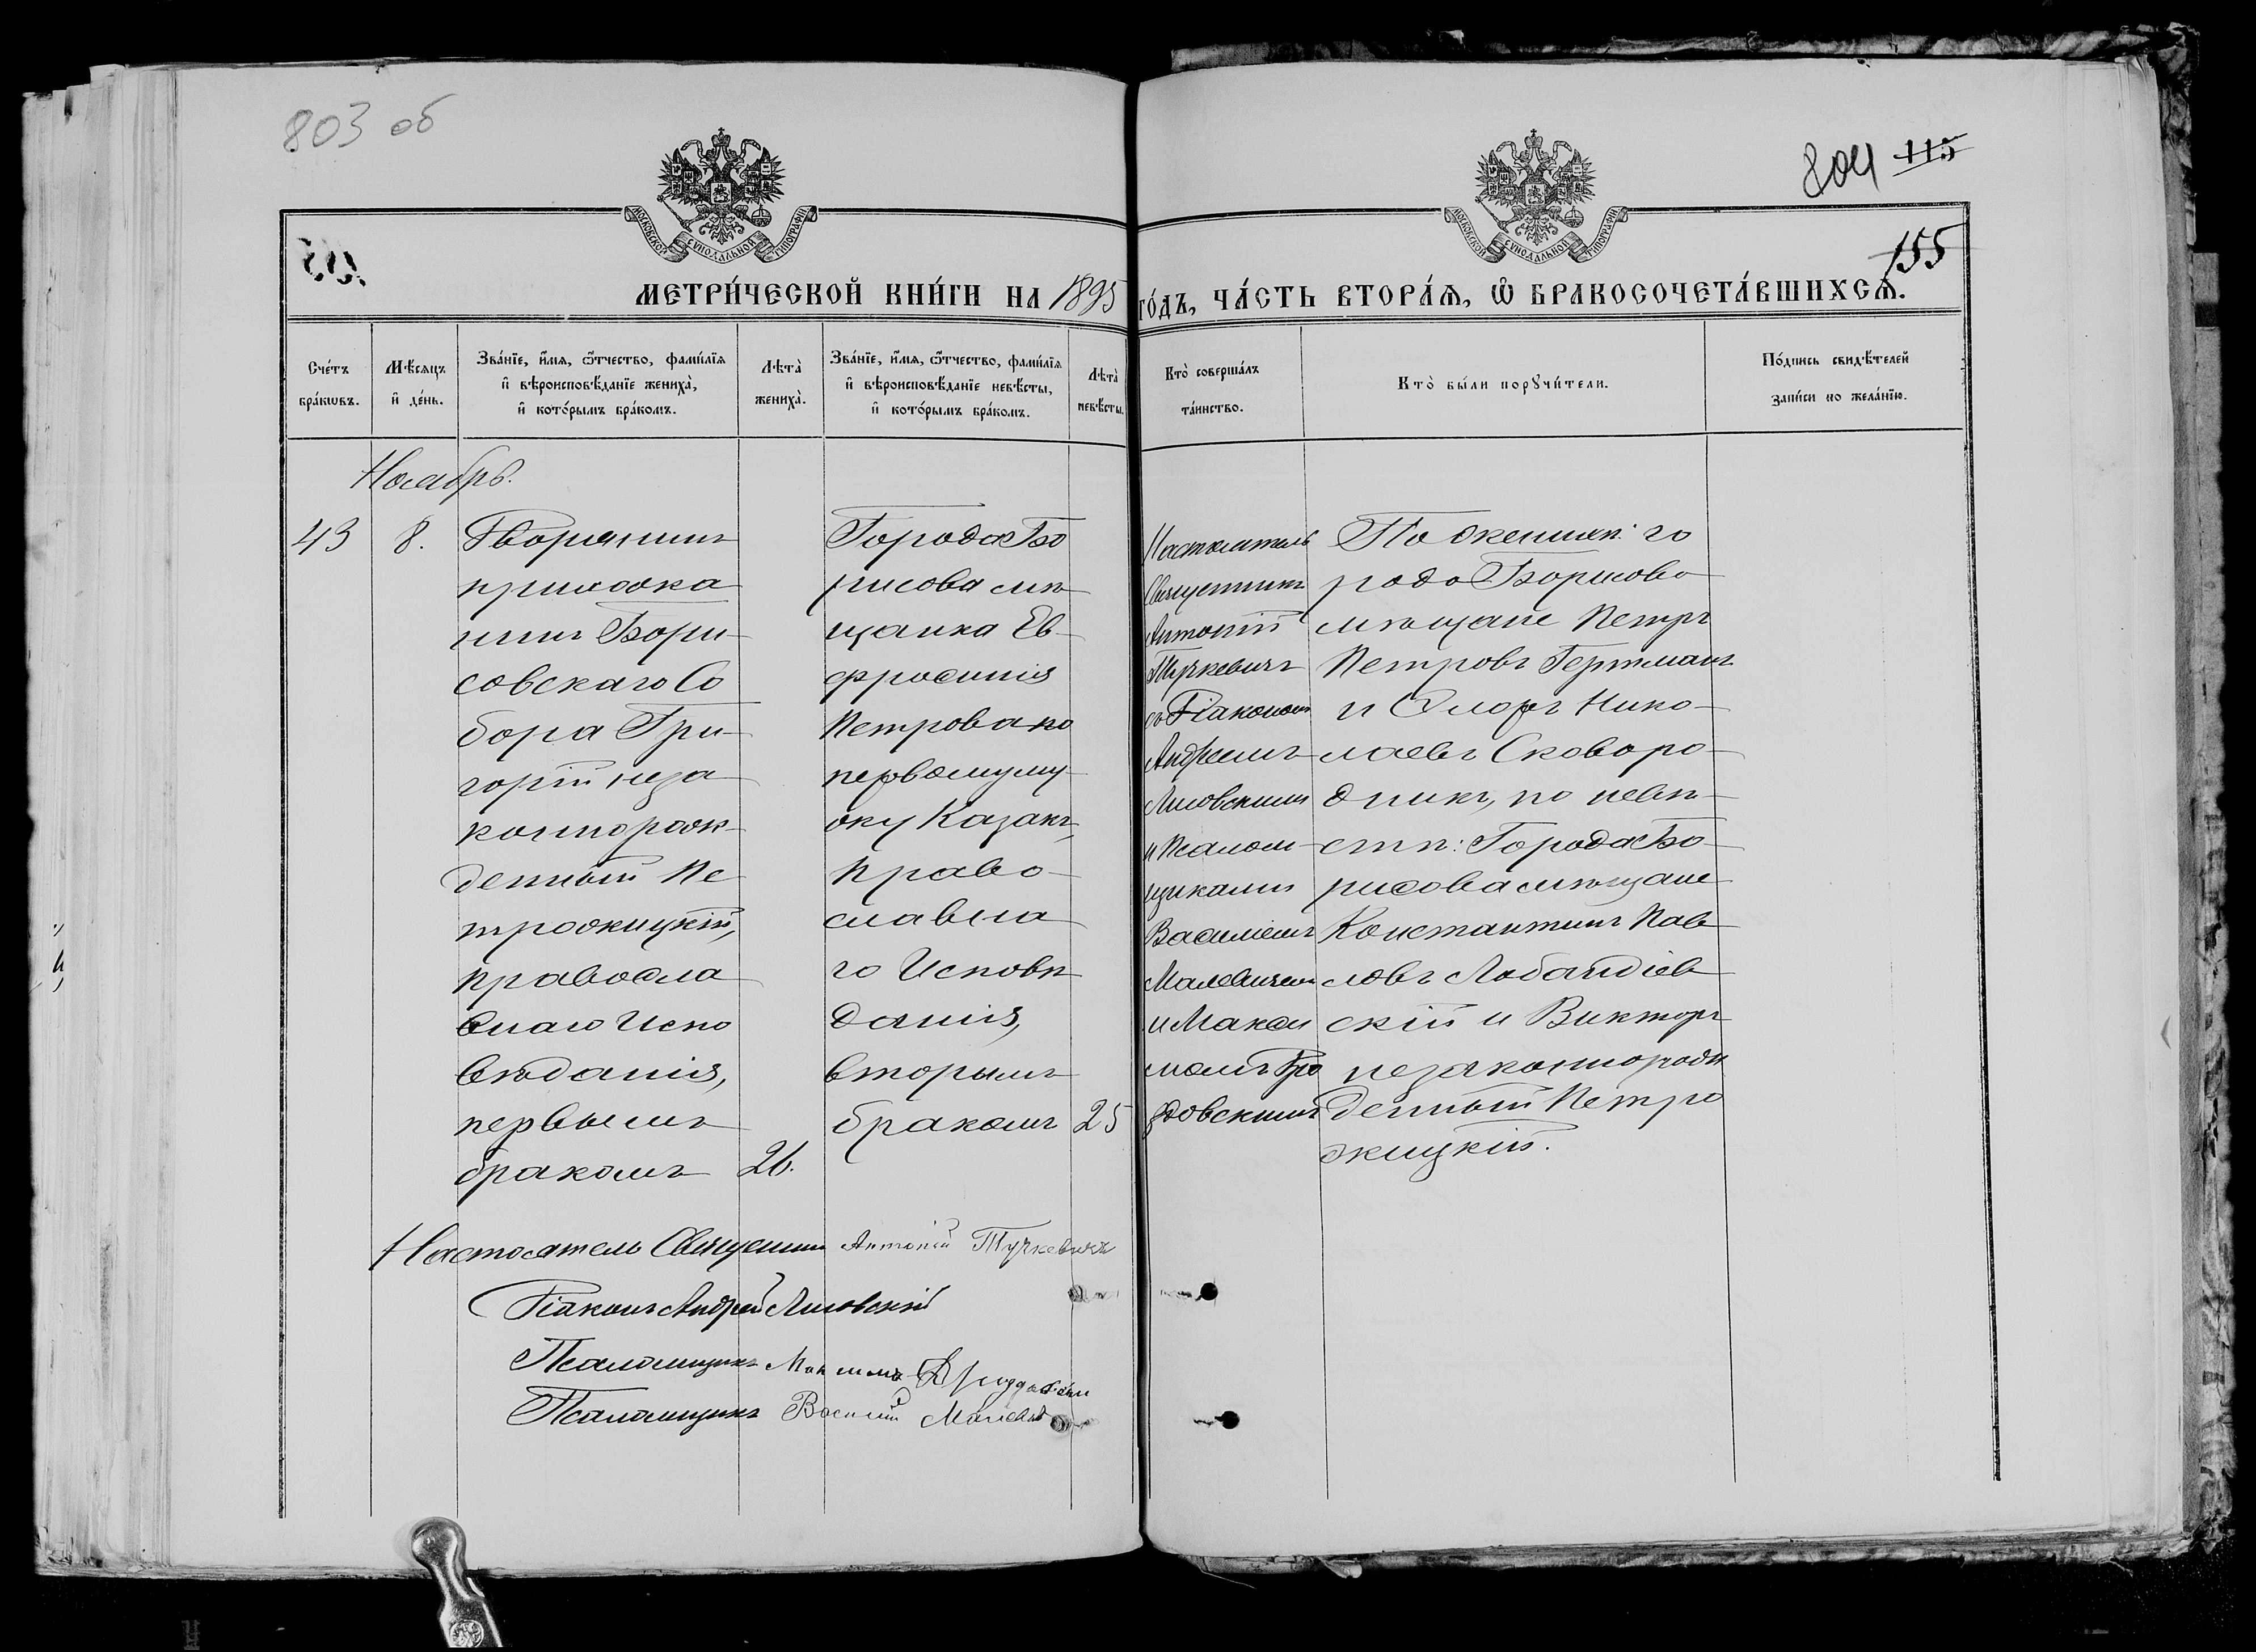 803 об
804 115
155
МОСКОВСКОЙ СѴНОДАЛЬНОЙ ТИПОГРАФІИ
МОСКОВСКОЙ СѴНОДАЛЬНОЙ ТИПОГРАФІИ
МЕТРИ́ЧЕСКОЙ КНИ́ГИ НА 1895 ГО́ДЪ, ЧА́СТЬ ВТОРА́Я, Ѡ҆ БРАКОСОЧЕТА́ВШИХСѦ.
Сче́тъ
бра́кѡвъ.
Мѣ́сяцъ
и҆ де́нь.
Зва́нїе, и҆́мя, ѻ҆́тчество, фами́лїя
и҆ вѣроисповѣ́данїе жениха̀,
и҆ кото́рымъ бра́комъ.
Лѣта̀
жениха̀.
Зва́нїе, и҆́мя, ѻ҆́тчество, фами́лїя
и҆ вѣроисповѣ́данїе невѣ́сты,
и҆ кото́рымъ бра́комъ.
Лѣта̀
невѣ́сты.
Кто̀ соверша́лъ
та́инство.
Кто̀ бы́ли порꙋчи́тели.
По́дпись свидѣ́телей
за́писи по жела́нїю.
Ноябрь.
43
8.
Дворянинъ
прихожа
нинъ Бори-
совскаго Со
бора Гри-
горій неза
коннорож-
денный Пе
трожицкій,
правосла
внаго Испо
вѣданія,
первымъ
бракомъ
26.
Города Бо
рисова мѣ
щанка Ев-
фросинія
Петрова по
первому му-
жу Казакъ,
право-
славна
го Исповѣ
данія,
вторымъ
бракомъ
25
Настоятель
Священникъ
Антоній
Тучкевичъ
съ Діакономъ
Андреемъ
Лисовскимъ
и Псалом-
щиками
Василіемъ
Малевичемъ
и Макси
момъ Дро
здовскимъ
По женихѣ: го
рода Борисова
мѣщане Петръ
Петровъ Гертманъ
и Флоръ Нико-
лаевъ Сковоро-
дникъ, по невѣ-
стѣ: Города Бо-
рисова мѣщане
Константинъ Пав
ловъ Лобандіев
скій и Викторъ
незаконнорож
денный Петро
жицкій.
Настоятель Священник Антоній Тучкевичъ
Діаконъ Андрей Лисовскій
Псаломщикъ Максимъ Дроздовскій
Псаломщикъ Василій Малевичъ